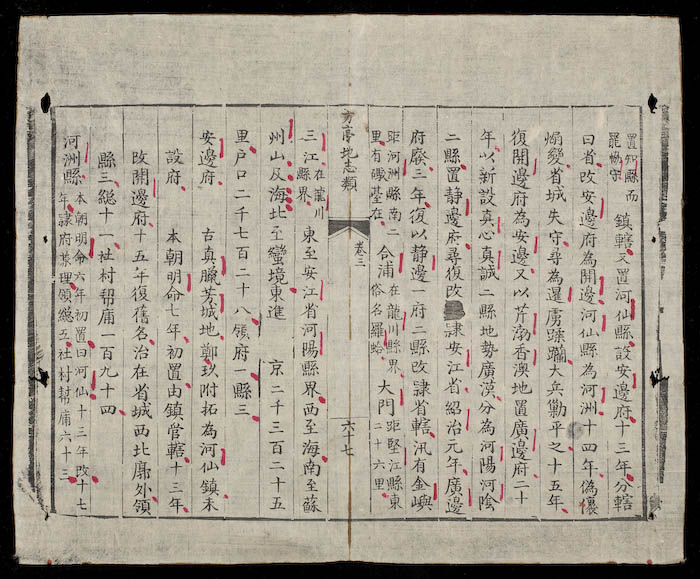 置知縣而
罷協守
鎮轄又置河仙縣設安邊府十三年分轄
曰省改安邊府為開邊河仙縣為河洲十四年偽儂
煽變省城失守尋為暹虜蹂躝大兵勦平之十五年
復開邊府為安邊又以芹渤香澳地置廣邊府二十
年以新設真心真誠二縣地勢廣漠分為河陽河陰
二縣置静邊府尋復改隷安江省紹治元年廣邊
府廢三年復以静邊一府二縣改隷省轄汛有金嶼
距河洲縣南二
里有礮臺在
合浦
在龍川縣界
俗名羅蛤
大門
距堅江縣東
二十六里
方亭地志類
卷三
六十七
三江
在龍川
縣界
東至安江省河陽縣界西至海南至蘇
州山及海北至蠻境東進 京二千三百二十五
里户口二千七百二十八領府一縣三
安邊府 古真臘芳城地鄭玖附拓為河仙鎮未
設府 本朝明命七年初置由鎮管轄十三年
改開邊府十五年復舊名治在省城西北廓外領
縣三總十一社村幇庯一百九十四
河洲縣
本朝明命六年初置曰河仙十三年改十七
年隷府兼理領總五社村幇庯六十三